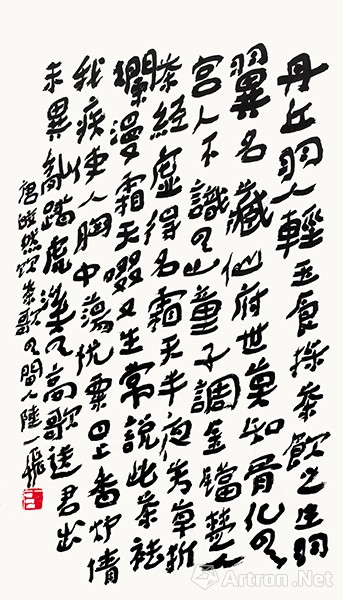 丹丘羽人輕玉食採茶飲之生羽
翼名藏仙府世莫知骨化云
宮人不識云山童子調金鐺楚人
茶經虛得名霜天半夜芳草折
爛漫霜天啜又生常說此茶祛
我疾使人胸中蕩忧栗日上香炉情
未畢亂踏虎溪云高歌送君出
唐皎然饮茶歌云間人陸一飛
Artron.Net